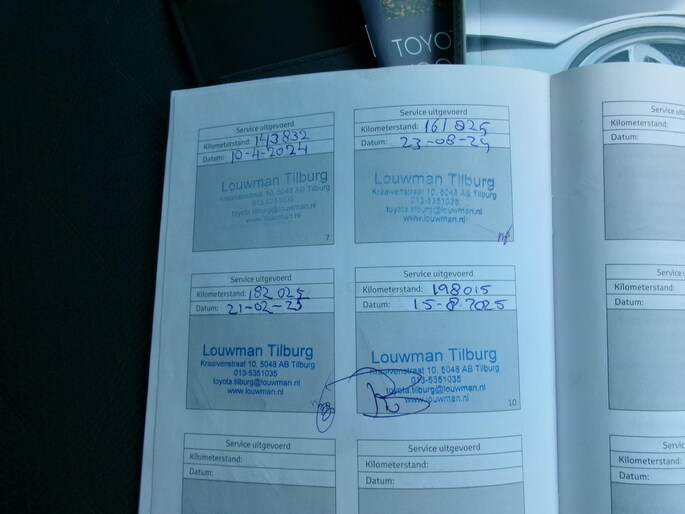 TOYO
Service uitgevoerd
Kilometerstand: 143832
Datum: 10-4-2024
Louwman Tilburg
Kraaivenstraat 10, 5048 AB Tilburg
013-5351035
toyota.tilburg@louwman.nl
www.louwman.nl
7
Service uitgevoerd
Kilometerstand: 161825
Datum: 23-08-24
Louwman Tilburg
Kraaivenstraat 10, 5048 AB Tilburg
013-5351035
toyota.tilburg@louwman.nl
www.louwman.nl
Service uitgevoerd
Kilometerstand: 182025
Datum: 21-02-25
Louwman Tilburg
Kraaivenstraat 10, 5048 AB Tilburg
013-5351035
toyota.tilburg@louwman.nl
www.louwman.nl
Service uitgevoerd
Kilometerstand: 198015
Datum: 15-8-2025
Louwman Tilburg
Kraaivenstraat 10, 5048 AB Tilburg
013-5351035
toyota.tilburg@louwman.nl
www.louwman.nl
10
Service uitgevoerd
Kilometerstand:
Datum:
Service uitgevoerd
Kilometerstand:
Datum:
Service uit
Kilometerstand:
Datum:
Service ui
Kilometerstand:
Datum:
Service ui
Kilometerstand:
Datum: